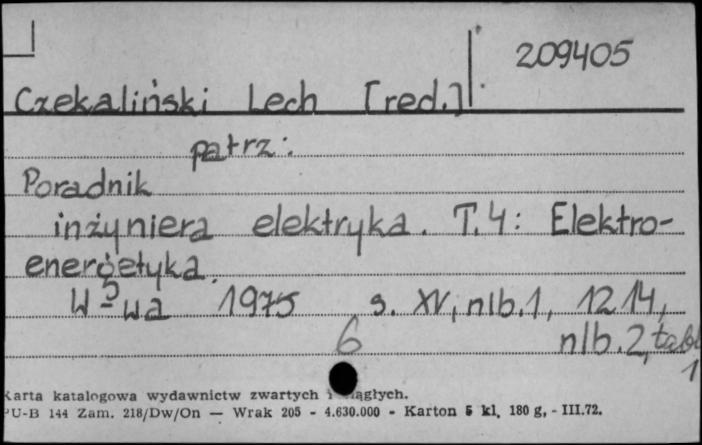 209405
Czekaliński Lech [red.]
patrz:
Poradnik
inżyniera elektryka. T.4: Elektro-
energetyka.
W-wa 1975 s. XV, nlb.1, 1214,
6 nlb.2, tabl
1
Karta katalogowa wydawnictw zwartych i ciągłych.
PU-B 144 Zam. 218/Dw/On — Wrak 205 - 4.630.000 - Karton 5 kl. 180 g, - III.72.